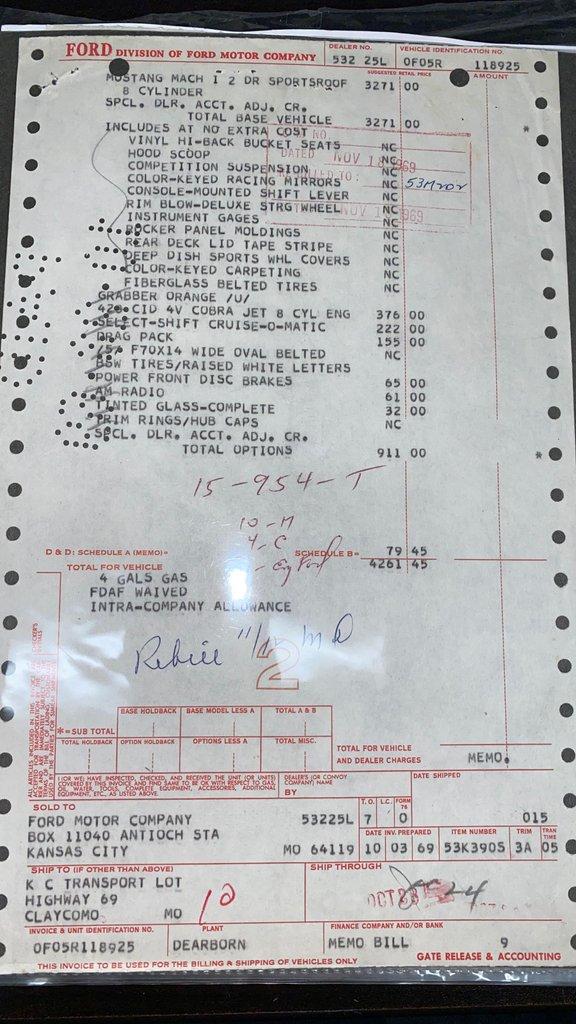 FORD DIVISION OF FORD MOTOR COMPANY
DEALER NO. 532 25L
VEHICLE IDENTIFICATION NO. 0F05R 118925
SUGGESTED RETAIL PRICE AMOUNT
MUSTANG MACH I 2 DR SPORTSROOF 3271 00
8 CYLINDER
SPCL. DLR. ACCT. ADJ. CR.
TOTAL BASE VEHICLE 3271 00 *
INCLUDES AT NO EXTRA COST
VINYL HI-BACK BUCKET SEATS NC
HOOD SCOOP NC
COMPETITION SUSPENSION NC
COLOR-KEYED RACING MIRRORS NC
CONSOLE-MOUNTED SHIFT LEVER NC
RIM BLOW-DELUXE STRG WHEEL NC
INSTRUMENT GAGES NC
ROCKER PANEL MOLDINGS NC
REAR DECK LID TAPE STRIPE NC
DEEP DISH SPORTS WHL COVERS NC
COLOR-KEYED CARPETING NC
FIBERGLASS BELTED TIRES NC
NO
DATED NOV 18 1969
TO:
NOV 1 1969
GRABBER ORANGE /U/
428 CID 4V COBRA JET 8 CYL ENG 376 00
SELECT-SHIFT CRUISE-O-MATIC 222 00
DRAG PACK 155 00
/57 F70X14 WIDE OVAL BELTED NC
BSW TIRES/RAISED WHITE LETTERS
POWER FRONT DISC BRAKES 65 00
AM RADIO 61 00
TINTED GLASS-COMPLETE 32 00
TRIM RINGS/HUB CAPS NC
SPCL. DLR. ACCT. ADJ. CR.
TOTAL OPTIONS 911 00 *
15-954-T
10-M
4-C
D & D: SCHEDULE A (MEMO)= SCHEDULE B= 79 45
TOTAL FOR VEHICLE 4261 45
4 GALS GAS
FDAF WAIVED
INTRA-COMPANY ALLOWANCE
Rebill
2
BASE HOLDBACK BASE MODEL LESS A TOTAL A & B
*= SUB TOTAL
TOTAL HOLDBACK OPTION HOLDBACK OPTIONS LESS A TOTAL MISC.
TOTAL FOR VEHICLE
AND DEALER CHARGES MEMO.
I (OR WE) HAVE INSPECTED, CHECKED, AND RECEIVED THE UNIT (OR UNITS)
COVERED BY THIS INVOICE AND FIND SAME TO BE OK WITH RESPECT TO GAS,
OIL, WATER, TOOLS, COMPLETE EQUIPMENT, ACCESSORIES, ADDITIONAL
EQUIPMENT, ETC., AS LISTED ABOVE.
DEALER'S (OR CONVOY
COMPANY) NAME
BY
DATE SHIPPED
SOLD TO
T.O. L.C. FORM 76
FORD MOTOR COMPANY 53225L 7 0 015
BOX 11040 ANTIOCH STA
DATE INV. PREPARED ITEM NUMBER TRIM TRAN TIME
KANSAS CITY MO 64119 10 03 69 53K390S 3A 05
SHIP TO (IF OTHER THAN ABOVE) SHIP THROUGH
K C TRANSPORT LOT
HIGHWAY 69
CLAYCOMO MO
OCT 23
INVOICE & UNIT IDENTIFICATION NO. PLANT FINANCE COMPANY AND/OR BANK
0F05R118925 DEARBORN MEMO BILL 9
GATE RELEASE & ACCOUNTING
THIS INVOICE TO BE USED FOR THE BILLING & SHIPPING OF VEHICLES ONLY